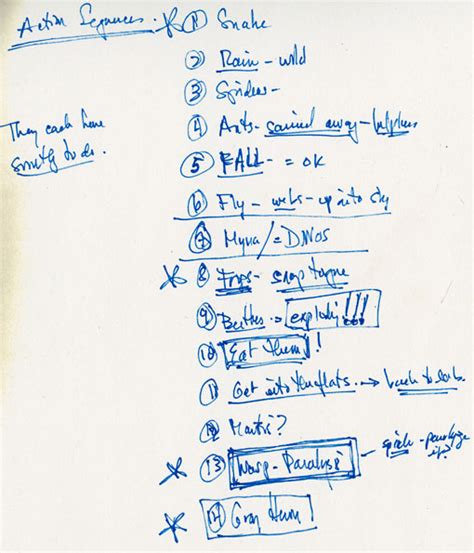 Action Sequences.
1 Snake
2 Rain - wild
3 Spiders -
4 Ants - carried away - helpless
They each have
smthg to do.
5 FALL - = OK
6 Fly - webs - up into sky
7 Myna / = DINOS
8 Frogs - snap tongue
9 Beetles → exploding!!!
10 Eat Them!
11 Get into → back to
12 Mantis?
13 Wasp - Paralysis
14 Gray